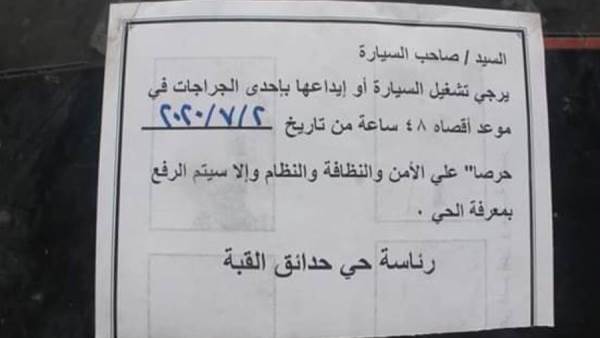 السيد / صاحب السيارة
يرجي تشغيل السيارة أو إيداعها بإحدى الجراجات في
موعد أقصاه ٤٨ ساعة من تاريخ ٢٠٢٠/٧/٢
حرصا" علي الأمن والنظافة والنظام وإلا سيتم الرفع
بمعرفة الحي .
رئاسة حي حدائق القبة